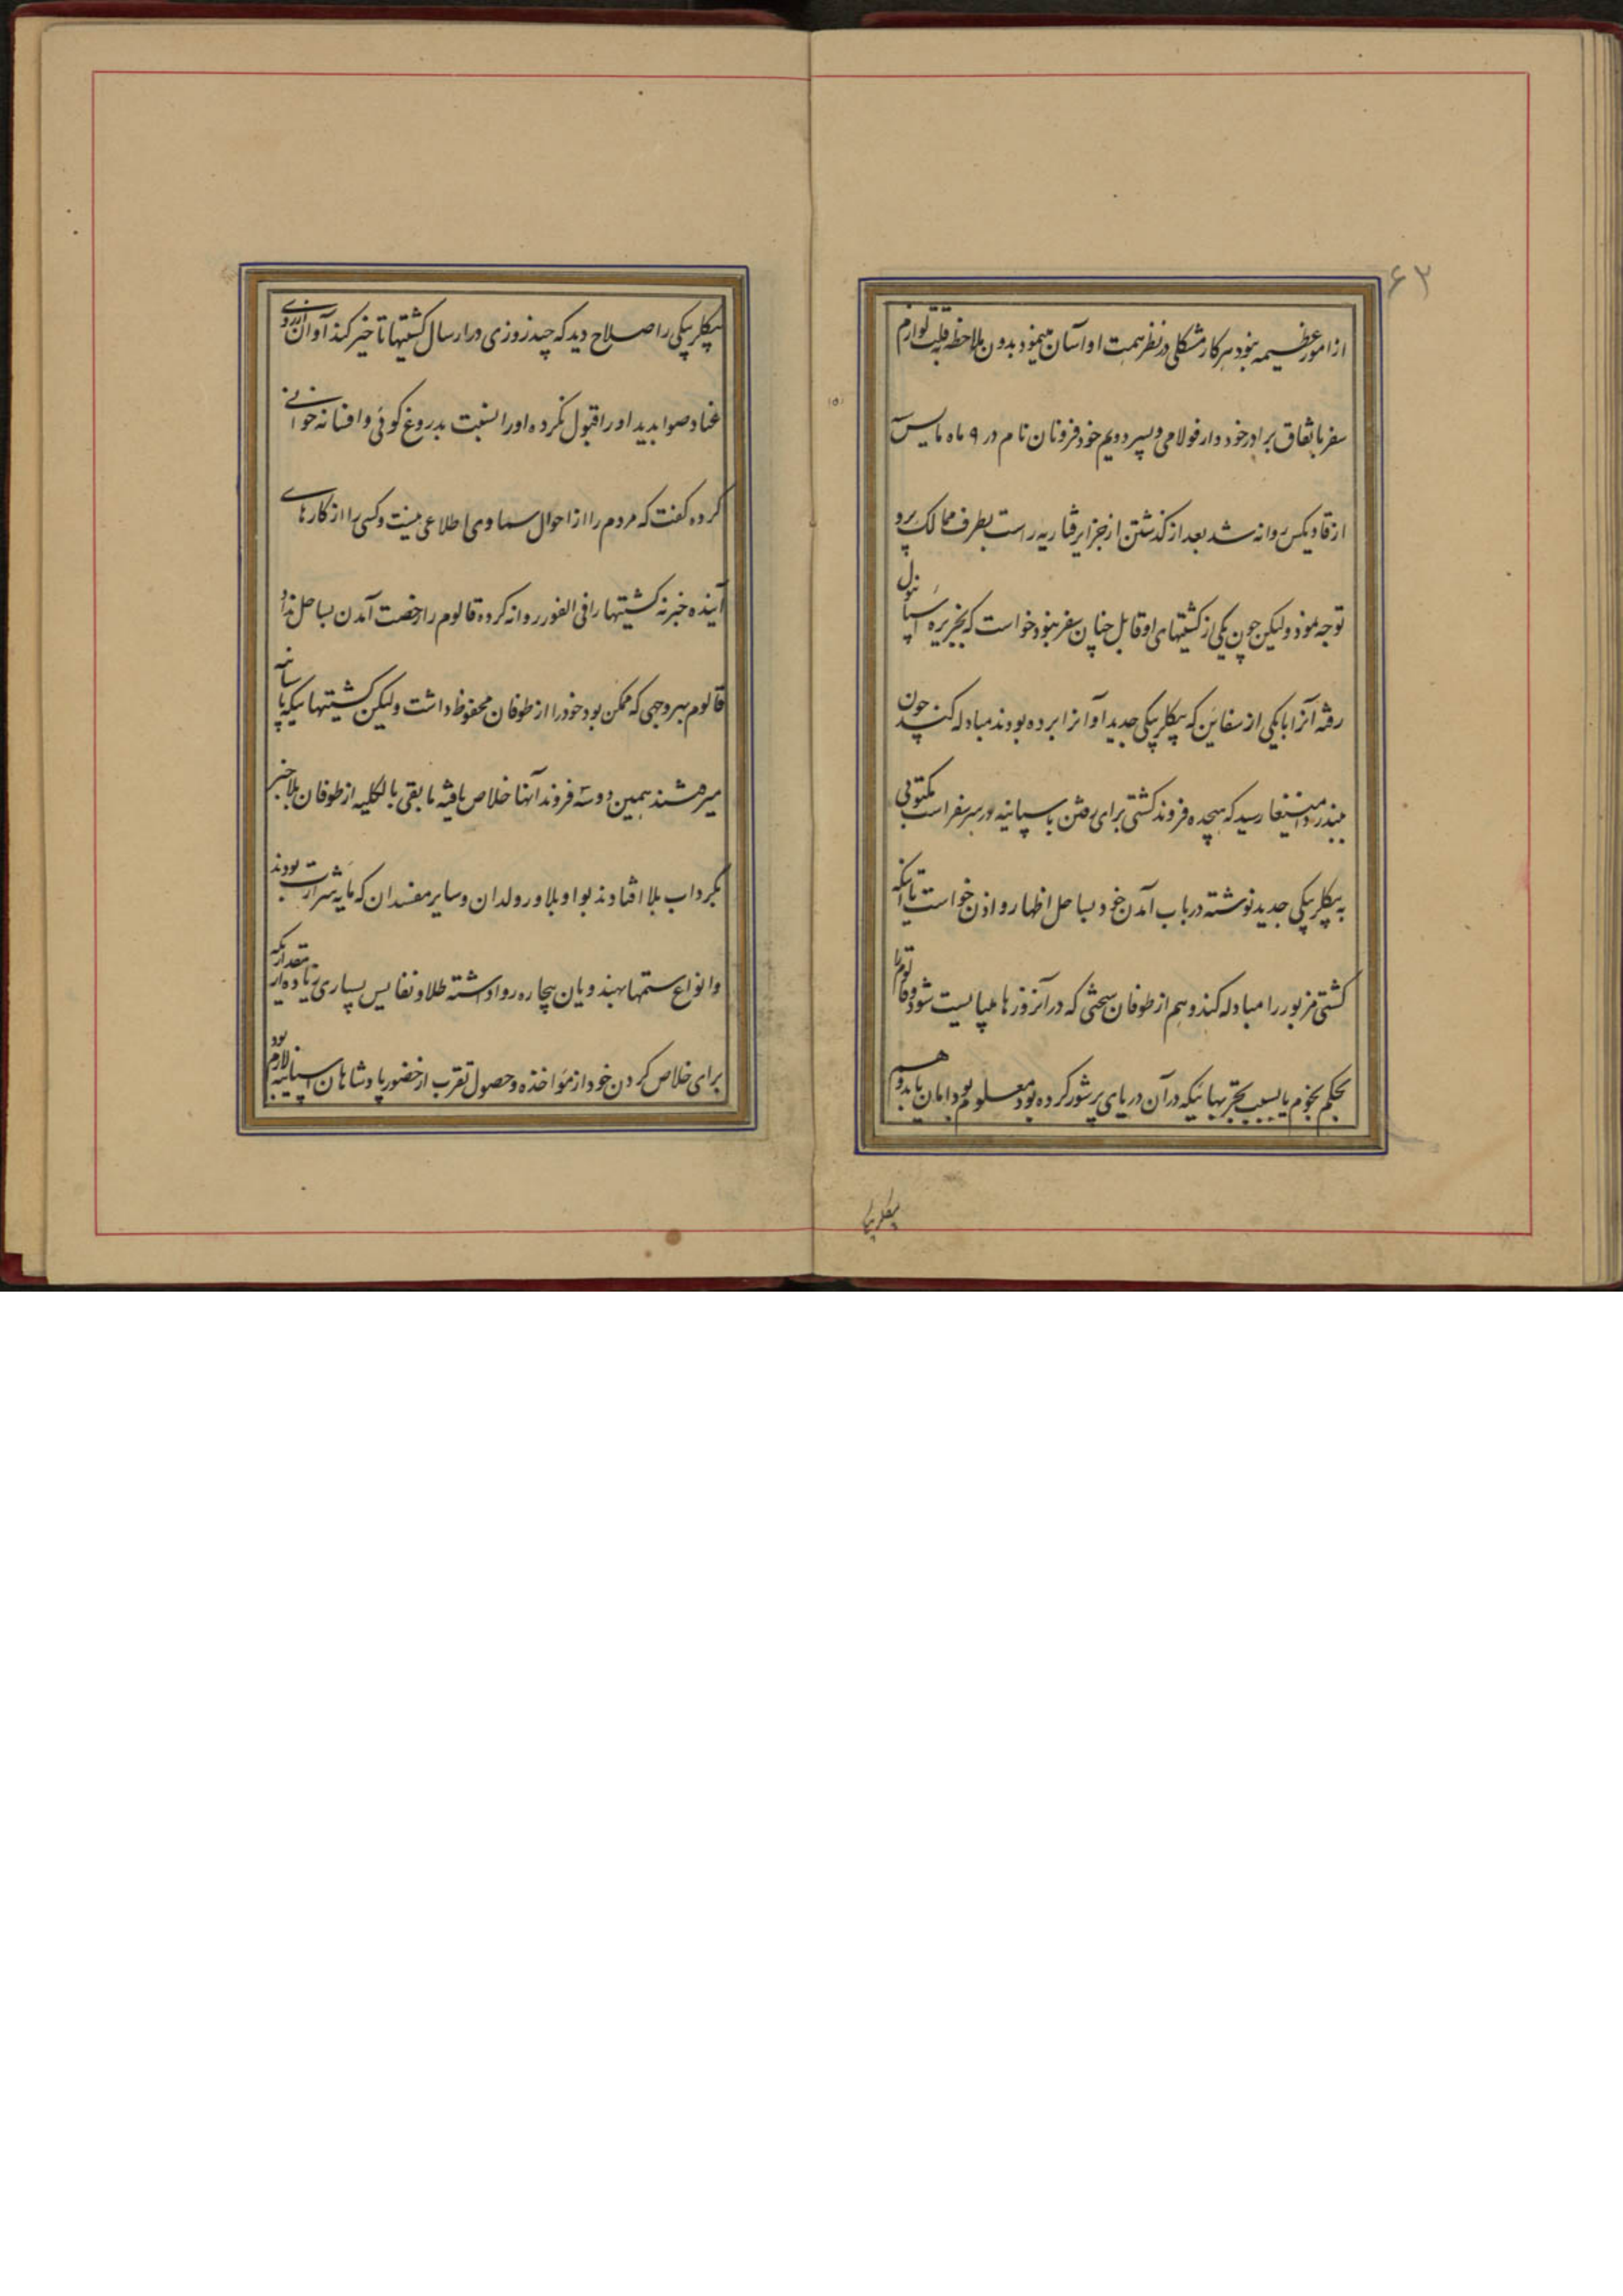 ۶۲
از امور عظیمه نبود هر کار مشکلی در نظر همت او آسان مینمود بدون ملاحظه قلت لوازم
سفر باتفاق برادر خود وارفولامی و پسر دویم خود فرونان نام در ۹ ماه مایس
از قادیکس روانه شد بعد از گذشتن از جزایر قناریه راست بطرف ممالک پرو
توجه نمود ولیکن چون یکی از کشتیهای او قابل چنان سفر نبود خواست که بجزیره اسپانیول
رفته آنرا با یکی از سفاین که بیکلربیکی جدید آوانرا برده بودند مبادله کند چون
ببندر رسید که هیجده فروند کشتی برای رفتن باسپانیه در سر سفر است مکتوبی
به بیکلربیکی جدید نوشته در باب آمدن خود بساحل اظهار و اذن خواست تا آنکه
کشتی مزبور را مبادله کند و هم از طوفان سختی که در آنروزها میبایست شود قالوم را
بحکم نجوم یا بسبب تجربهائیکه در آن دریای پرشور کرده بود معلوم بود امان یابد و هم
بیکلربیکی
بیکلربیکی را صلاح دید که چند روزی در ارسال کشتیها تاخیر کند آوان از روی
عناد صوابدید او را قبول نکرده او را نسبت بدروغ کوئی و افسانه خوانی
کرده گفت که مردم را از احوال سماوی اطلاعی نیست و کسی را از کارهای
آینده خبر نه کشتیها را فی الفور روانه کرده قالوم را رخصت آمدن بساحل نداد
قالوم بهر وجهی که ممکن بود خود را از طوفان محفوظ داشت ولیکن کشتیهائیکه باسپانیه
میرفتند همین دو سه فروند آنها خلاص یافته مابقی بالکلیه از طوفان بلاخیز
بگرداب بلا افتادند بواویلا و رولدان و سایر مفسدان که مایه شرارت بودند
و انواع ستمها بهندویان بیچاره روا داشته طلا و نفایس بسیاری زیاده از مقداریکه
برای خلاص کردن خود از مواخذه و حصول تقرب از حضور پادشاهان اسپانیه لازم بود